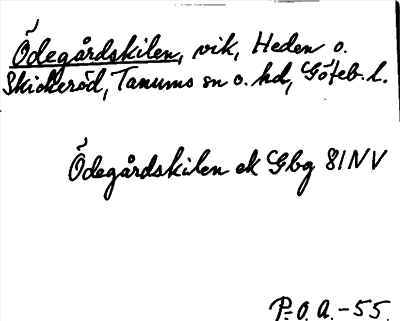 Ödegårdskilen, vik, Heden o.
Skickeröd, Tanums sn o. hd, Göteb. l.
Ödegårdskilen ek Gbg 81NV
P.O.A.-55.